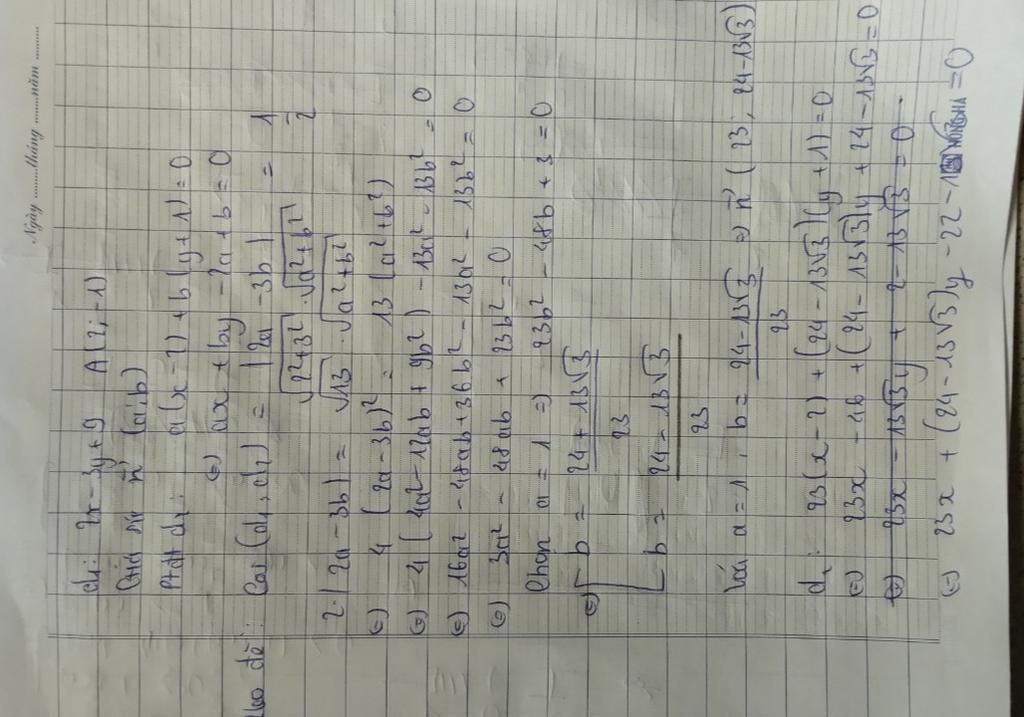 Ngày ........tháng ........năm ........
d1: 2x - 3y + 9 A(2; -1)
Giả sử n⃗ (a; b)
Ptđt d2: a(x - 2) + b(y + 1) = 0
(=) ax + by - 2a + b = 0
Theo đề: Cos(d1, d2) = |2a - 3b| / (√(2² + 3²) . √(a² + b²)) = 1/2
2.|2a - 3b| = √13 . √(a² + b²)
(=) 4 (2a - 3b)² = 13 (a² + b²)
(=) 4(4a² - 12ab + 9b²) - 13a² - 13b² = 0
(=) 16a² - 48ab + 36b² - 13a² - 13b² = 0
(=) 3a² - 48ab + 23b² = 0
Chọn a = 1 => 23b² - 48b + 3 = 0
(=) [ b = (24 + 13√3)/23
[ b = (24 - 13√3)/23
Với a = 1, b = (24 - 13√3)/23 => n⃗ (23; 24 - 13√3)
d2: 23(x - 2) + (24 - 13√3)(y + 1) = 0
(=) 23x - 46 + (24 - 13√3)y + 24 - 13√3 = 0
(=) 23x - 13√3y + 2 - 13√3 = 0
(=) 23x + (24 - 13√3)y - 22 - 13√3 = 0